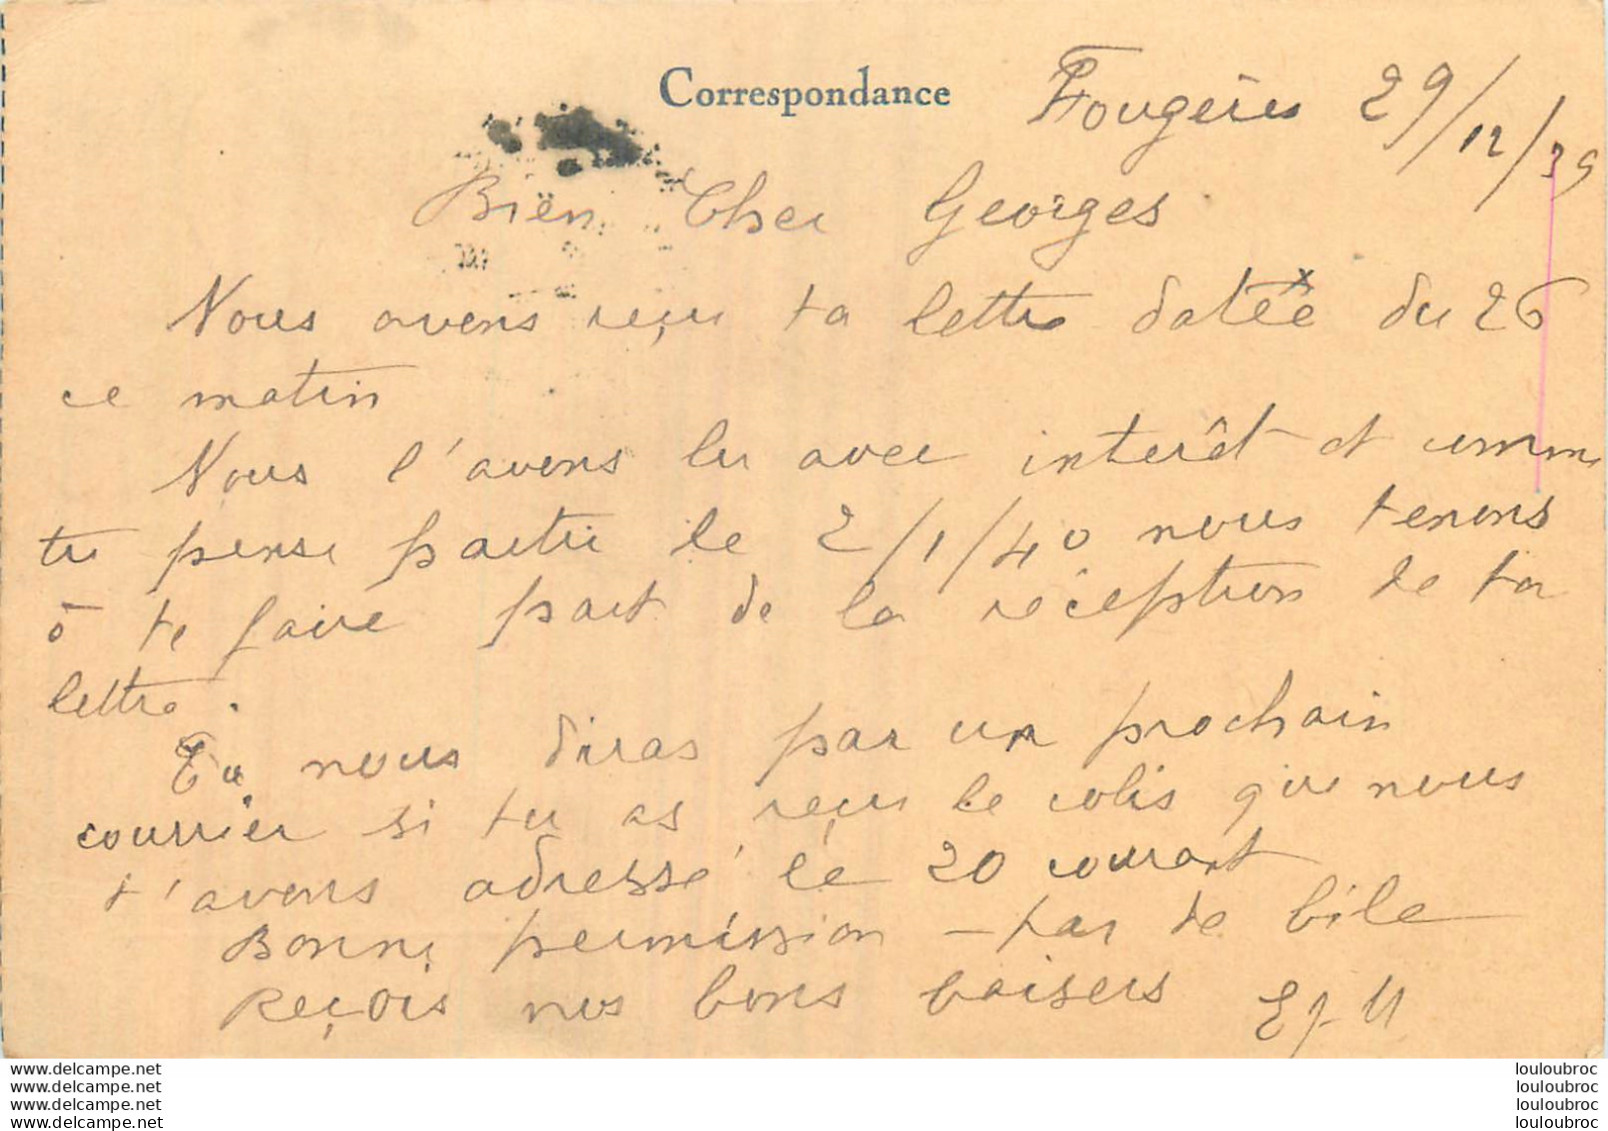 Correspondance
Fougères 29/12/39
Bien Cher Georges
Nous avons reçu ta lettre datée du 26
ce matin
Nous l'avons lu avec intérêt et comme
tu pense partir le 2/1/40 nous tenons
à te faire part de la réception de ta
lettre.
Tu nous diras par un prochain
courrier si tu as reçu le colis que nous
t'avons adressé le 20 courant
Bonne permission - pas de bile
Reçois nos bons baisers
www.delcampe.net
www.delcampe.net
www.delcampe.net
www.delcampe.net
louloubroc
louloubroc
louloubroc
louloubroc